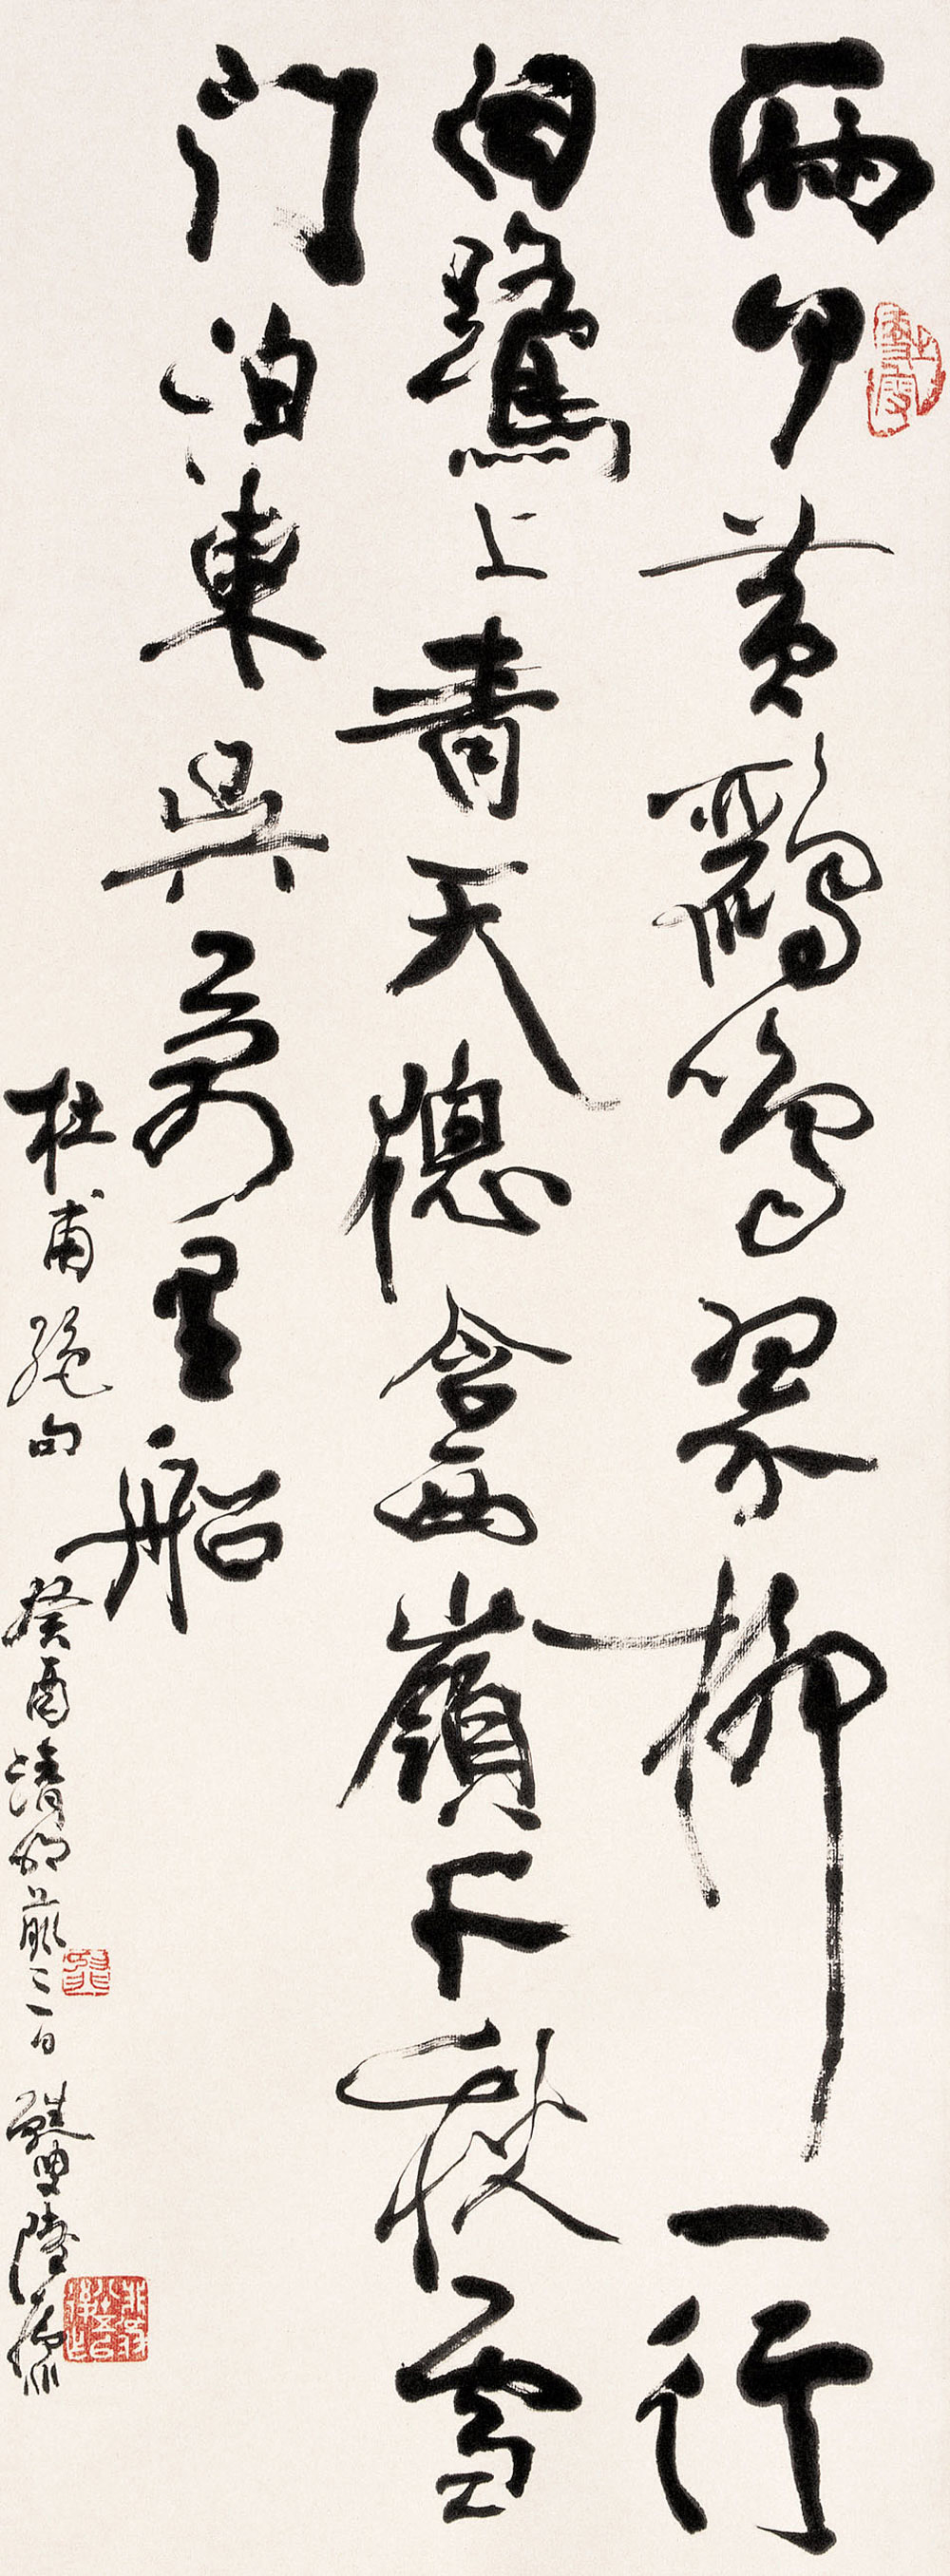 兩个黃鸝鳴翠柳一行
白鷺上青天牕含西嶺千秋雪
门泊東吳萬里船
杜甫絕句 癸酉清明前三日 叟陸抑非